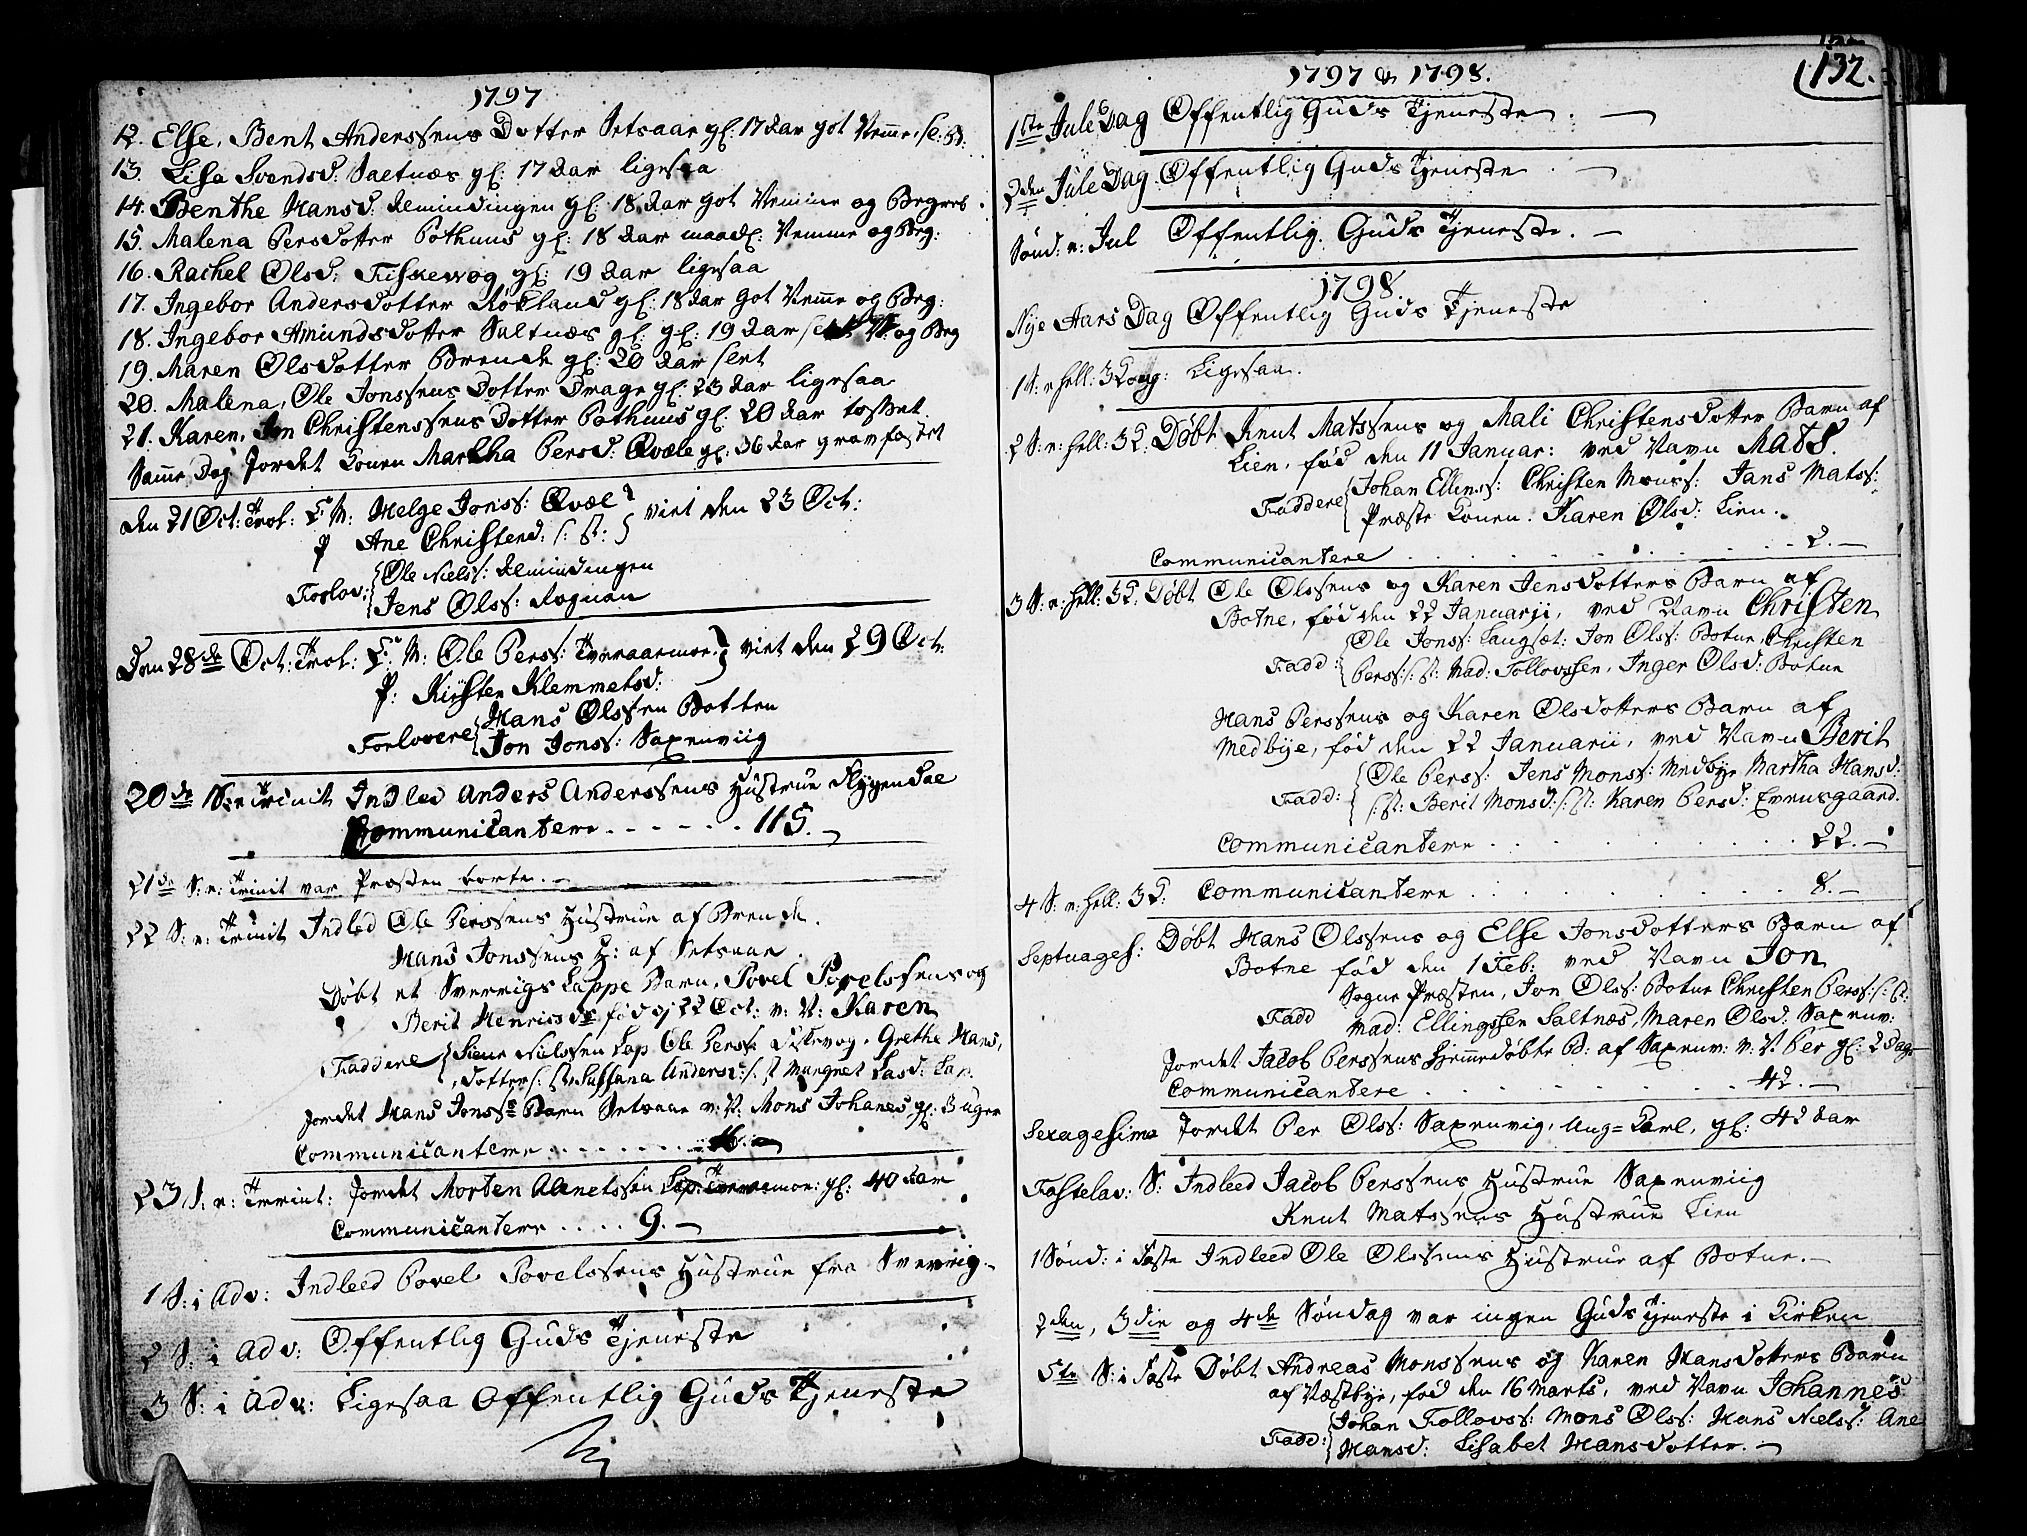 1797
12. Else, Bent Anderssens Dotter Setsaae gl: 17 Aar got Nemme,
13. Lisa Svendsd: Saltnæs gl: 17 Aar ligesaa
14. Benthe Hansd: Almindingen gl: 18 Aar got Nemme og Begreb.
15. Malena Persdotter Pothuus gl: 18 Aar maadl: Nemme og Beg:
16. Rachel Olsd: Fiskevog gl: 19 Aar ligesaa
17. Ingebor Andersdotter Røkland gl: 18 Aar got Nemme og Beg:
18. Ingebor Amundsdotter Saltnæs gl: gl: 19 Aar og Beg
19. Maren Olsdotter Brende gl: 20 Aar slet
20. Malena, Ole Jonssens Dotter Drage gl: 23 Aar ligesaa
21. Karen, Jon Christenssens Dotter Pothuus gl: 20 Aar tosset.
Samme Dag Jordet Konen Martha Persd: Qvæle gl: 36 Aar gravfæstet
den 21 Oct: Trol: U: M: Helge Jonss: Qvæl viet den 23 Oct:
P Ane Christend: s: st:
Forlov: Ole Niels: Almindingen
Jens Olss: Rognan
Den 28de Oct: Trol: U: M: Ole Perss: Tveraamoe viet den 29 Oct:
P: Kirsten Klemmetsd:
Forlovere Hans Olssen Botten
Jon Jonss: Saxenviig
20de S: e: Trinit Indled Anders Anderssens Hustrue Slygendal
Communicantere - - - - - - 115. -
21de S: e: Trinit var Præsten borte. -
22 S: e: Trinit Indled Ole Perssens Hustrue af Brende.
Hans Jonssens H: af Setsaae.
Døbt et Sverrigs Lappe Barn, Povel Povelssens og
Berit Henrics dr fød 22 Oct: v: N: Karen
Faddere Nielssen Lap Ole Perss: Fiskevog, Grethe Hans,
dotter s: st: Sussana Andersd: s: st Margret Lasd: Lap.
Jordet Hans Jonss: Barn Setsaae v: N: Mons Johanes gl: 3 Uger
Communicantere - - - - - - - 16. -
23 S: e: Trinit: Jordet Morten Lap: gl: 40 Aar
Communicantere . . . . 9. -
1 S: i Adv: Indleed Povel Povelssens Hustrue fra Sverrig. -
2 S: i Adv: Offentlig Guds Tjeneste
3 S: i Adv: Ligesaa Offentlig Guds Tjeneste
1797 & 1798.
132.
1ste Jule Dag Offentlig Guds Tjeneste. -
2den Jule Dag Offentlig Guds Tjeneste. -
Sønd: e: Jul Offentlig Guds Tjeneste. -
1798
Nye Aars Dag Offentlig Guds Tjeneste
1 S: e hell: 3 Kong: Ligesaa.
2 S: e: hell: 3 K: Døbt Knut Matssens og Mali Christensdotter Barn af
Lien, fød den 11 Januar: ved Navn Mats.
Faddere Johan Ellings: Christen Monss: Jans Matss:
Præste Konen. Karen Olsd: Lien.
Communicantere . . . . . . . . . 2. -
3 S: e: hell: 3 K: Døbt Ole Olssens og Karen Jensdotters Barn af
Botne, fød den 22 Januarii, ved Navn Christen
Fadd: Ole Jonss: Langsæt: Jon Olss: Botne, Christen
Perss: s: st: Mad: Follovssen, Inger Olsd: Botne
Hans Perssens og Karen Olsdotters Barn af
Medbye, fød den 22 Januarii, ved Navn Berit
Fadd: Ole Perss: Jens Monss: Medbye Martha Hansd:
s: st: Berit Monsd: s: st: Karen Persd: Evensgaard.
Communicantere . . . . . . . . 22. -
4 S: e: hell: 3 K: Communicantere . . . . . . . . 8. -
Septuages: Døbt Hans Olssens og Else Jonsdotters Barn af
Botne fød den 1 Feb: ved Navn Jon
Fadd Sogne Præsten, Jon Olss: Botne Christen Perss: s: st:
Mad: Ellingssen Saltnæs, Maren Olsd: Saxenv:
Jordet Jacob Perssens Hjemmedøbte B: af Saxenv: v: N: Per gl: 2 Dage
Communicantere . . . . . . . . 42. -
Sexagesima Jordet Per Olss: Saxenvig, Ung-Karl, gl: 42 Aar
Fastelav: S: Indleed Jacob Perssens Hustrue Saxenviig
Knut Matssens Hustrue Lien
1 Sønd: i Faste Indleed Ole Olssens Hustrue af Botne. -
2den, 3die og 4de Søndag var ingen Guds Tjeneste i Kirken
5te S: i Faste Døbt Andreas Monssens og Karen Hansdotters Barn
af Væstbye, fød den 16 Marts, ved Navn Johannes
Fadd: Johan Follovss: Mons Olss: Hans Nielss: Ane
Hansd: Lisabet Hansdotter. -